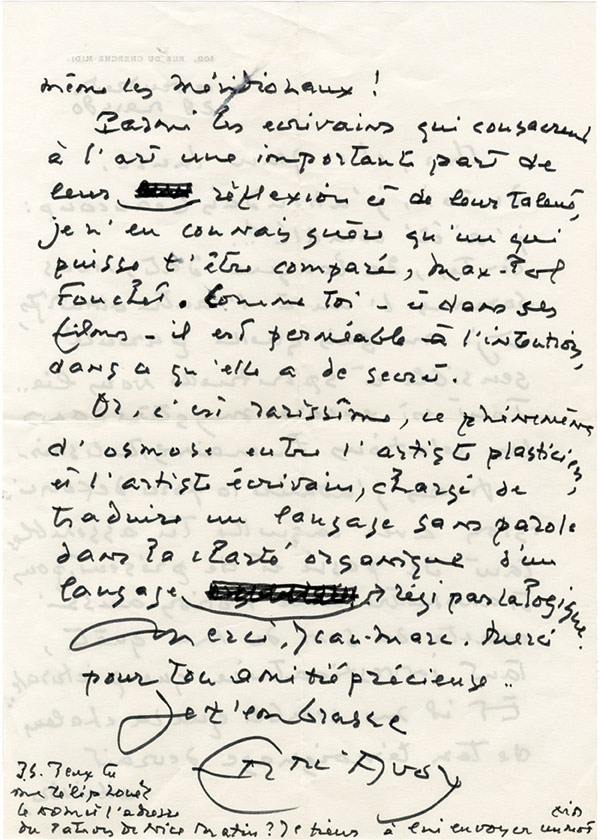 même les Méridionaux !
Parmi les ecrivains qui consacrent
à l'art une importante part de
leur réflexion et de leur talent,
je n'en connais guère qu'un qui
puisse t'être comparé, Max-Pol
Fouchet. Comme toi - et dans ses
films - il est perméable à l'intention,
dans ce qu'elle a de secret.
Or, c'est rarissime, ce phénomène
d'osmose entre l'artiste plasticien,
et l'artiste écrivain, chargé de
traduire un langage sans parole
dans la clarté organique d'un
langage régi par la logique.
Merci, Jean-Marc. Merci
pour ton amitié précieuse..
Je t'embrasse
P.S. Peux tu
me téléphoner
le nom et l'adresse
du Patron de Nice Matin ? Je tiens à lui envoyer un mot